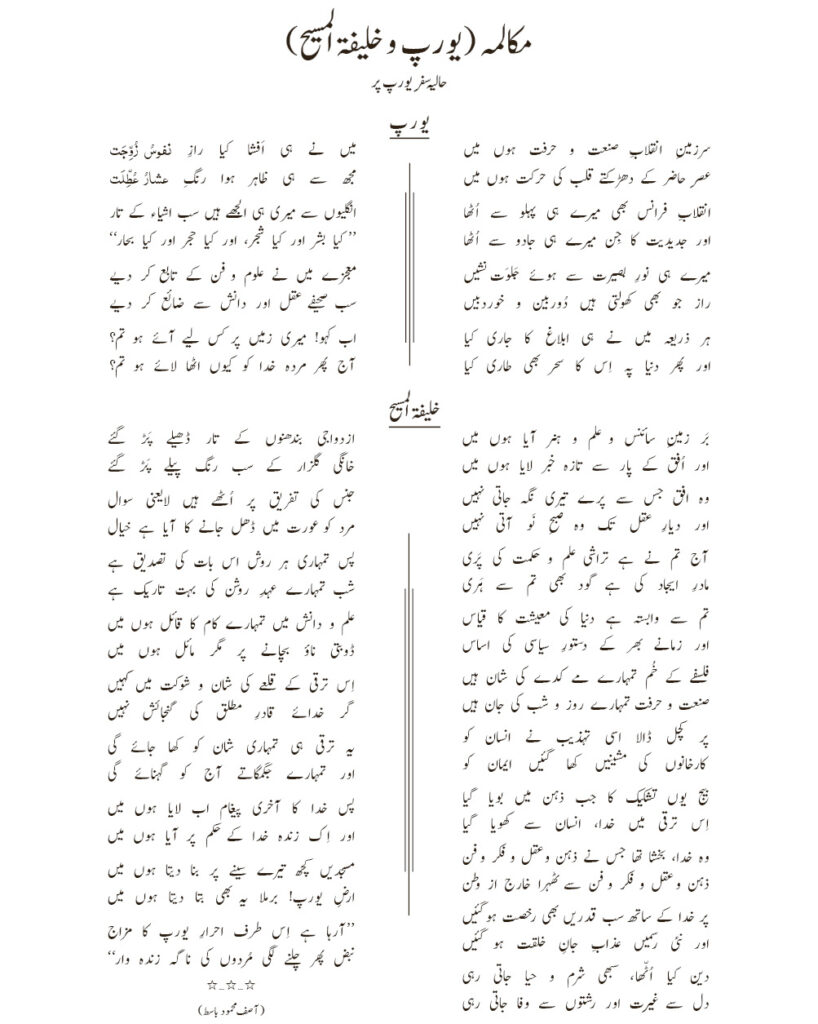 مکالمہ (یورپ و خلیفۃ المسیح)
حالیہ سفر یورپ پر
یورپ
سرزمینِ انقلابِ صنعت و حرفت ہوں میں
عصرِ حاضر کے دھڑکتے قلب کی حرکت ہوں میں
انقلابِ فرانس بھی میرے ہی پہلو سے اُٹھا
اور جدیدیت کا جِن میرے ہی جادو سے اُٹھا
میرے ہی نورِ بصیرت سے ہوئے جَلوَت نشیں
راز جو بھی کھولتی ہیں دُوربین و خوردبیں
ہر ذریعہ میں نے ہی ابلاغ کا جاری کیا
اور پھر دنیا پہ اِس کا سحر بھی طاری کیا
میں نے ہی اَفشا کیا رازِ نفوسُ زُوِّجَت
مجھ سے ہی ظاہر ہوا رنگِ عشارُ عُطِّلَت
انگلیوں سے میری ہی الجھے ہیں سب اشیاء کے تار
”کیا بشر اور کیا شجر، اور کیا حجر اور کیا بحار“
معجزے میں نے علوم و فن کے تابع کر دیے
سب صحیفے عقل اور دانش سے ضائع کر دیے
اب کہو! میری زمیں پر کس لیے آئے ہو تم؟
آج پھر مردہ خدا کو کیوں اٹھا لائے ہو تم؟
خلیفۃ المسیح
بَر زمینِ سائنس و علم و ہنر آیا ہوں میں
اور اُفق کے پار سے تازہ خبر لایا ہوں میں
وہ افق جس سے پرے تیری نگہ جاتی نہیں
اور دیارِ عقل تک وہ صبحِ نَو آتی نہیں
آج تم نے ہے تراشی علم و حکمت کی پَری
مادرِ ایجاد کی ہے گود بھی تم سے ہَری
تم سے وابستہ ہے دنیا کی معیشت کا قیاس
اور زمانے بھر کے دستورِ سیاسی کی اساس
فلسفے کے خُم تمہارے مے کدے کی شان ہیں
صنعت و حرفت تمہارے روز و شب کی جان ہیں
پر کچل ڈالا اسی تہذیب نے انسان کو
کارخانوں کی مشینیں کھا گئیں ایمان کو
بیج یوں تشکیک کا جب ذہن میں بویا گیا
اِس ترقی میں خدا، انسان سے کھویا گیا
وہ خدا، بخشا تھا جس نے ذہن و عقل و فکر و فن
ذہن و عقل و فکر و فن سے ٹھہرا خارج از وطن
پر خدا کے ساتھ سب قدریں بھی رخصت ہو گئیں
اور نئی رسمیں عذابِ جانِ خلقت ہو گئیں
دین کیا اُٹھا، سبھی شرم و حیا جاتی رہی
دل سے غیرت اور رشتوں سے وفا جاتی رہی
ازدواجی بندھنوں کے تار ڈھیلے پَڑ گئے
خانگی گلزار کے سب رنگ پیلے پَڑ گئے
جنس کی تفریق پر اُٹھے ہیں لایعنی سوال
مرد کو عورت میں ڈھل جانے کا آیا ہے خیال
پس تمہاری ہر روش اس بات کی تصدیق ہے
شب تمہارے عہدِ روشن کی بہت تاریک ہے
علم و دانش میں تمہارے کام کا قائل ہوں میں
ڈوبتی ناؤ بچانے پر مگر مائل ہوں میں
اِس ترقی کے قلعے کی شان و شوکت میں کہیں
گر خدائے قادرِ مطلق کی گنجائش نہیں
یہ ترقی ہی تمہاری شان کو کھا جائے گی
اور تمہارے جگمگاتے آج کو گہنائے گی
پس خدا کا آخری پیغام اب لایا ہوں میں
اور اِک زندہ خدا کے حکم پر آیا ہوں میں
مسجدیں کچھ تیرے سینے پر بنا دیتا ہوں میں
ارضِ یورپ! برملا یہ بھی بتا دیتا ہوں میں
”آرہا ہے اِس طرف احرارِ یورپ کا مزاج
نبض پھر چلنے لگی مُردوں کی ناگہ زندہ وار“
☆_☆_☆
(آصف محمود باسط)